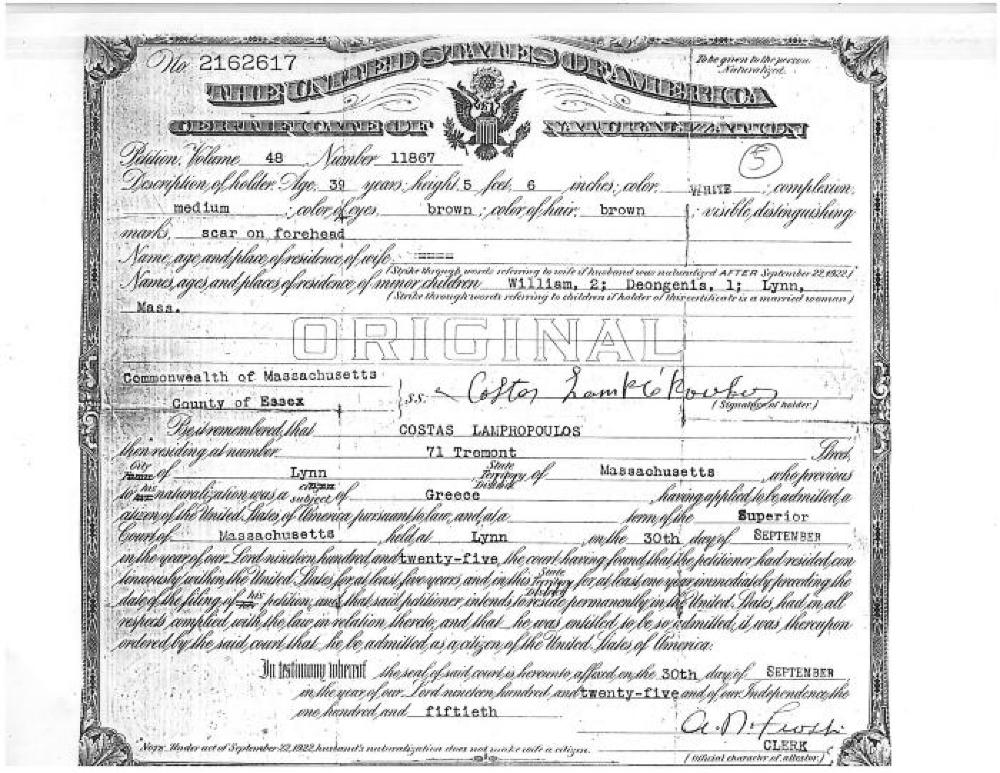 No 2162617
To be given to the person Naturalized.
THE UNITED STATES OF AMERICA
CERTIFICATE OF NATURALIZATION
5
Petition, Volume 48 Number 11867
Description of holder: Age, 39 years; height, 5 feet, 6 inches; color, WHITE; complexion,
medium; color of eyes, brown; color of hair, brown; visible distinguishing
marks, scar on forehead
Name, age and place of residence of wife, =====
(Strike through words referring to wife if husband was naturalized AFTER September 22, 1922.)
Names, ages, and places of residence of minor children William, 2; Deongenis, 1; Lynn,
(Strike through words referring to children if holder of this certificate is a married woman)
Mass.
ORIGINAL
Commonwealth of Massachusetts
County of Essex
s.s. Costas
(Signature of holder.)
Be it remembered, that COSTAS LAMPROPOULOS
then residing at number 71 Tremont Street,
City of Lynn State Territory District of Massachusetts, who previous
to his naturalization was a citizen subject of Greece, having applied to be admitted a
citizen of the United States of America pursuant to law, and, at a term of the Superior
Court of Massachusetts held at Lynn on the 30th day of SEPTEMBER
in the year of our Lord nineteen hundred and twenty-five, the court having found that the petitioner had resided con
tinuously within the United States for at least five years and in this State Territory District for at least one year immediately preceding the
date of the filing of his petition, and that said petitioner intends to reside permanently in the United States, had in all
respects complied with the law in relation thereto, and that he was entitled to be so admitted, it was thereupon
ordered by the said court that he be admitted as a citizen of the United States of America.
In testimony whereof the seal of said court is hereunto affixed on the 30th day of SEPTEMBER
in the year of our Lord nineteen hundred and twenty-five and of our Independence the
one hundred and fiftieth
CLERK
(Official character of attestor.)
Note. Under act of September 22, 1922, husband's naturalization does not make wife a citizen.